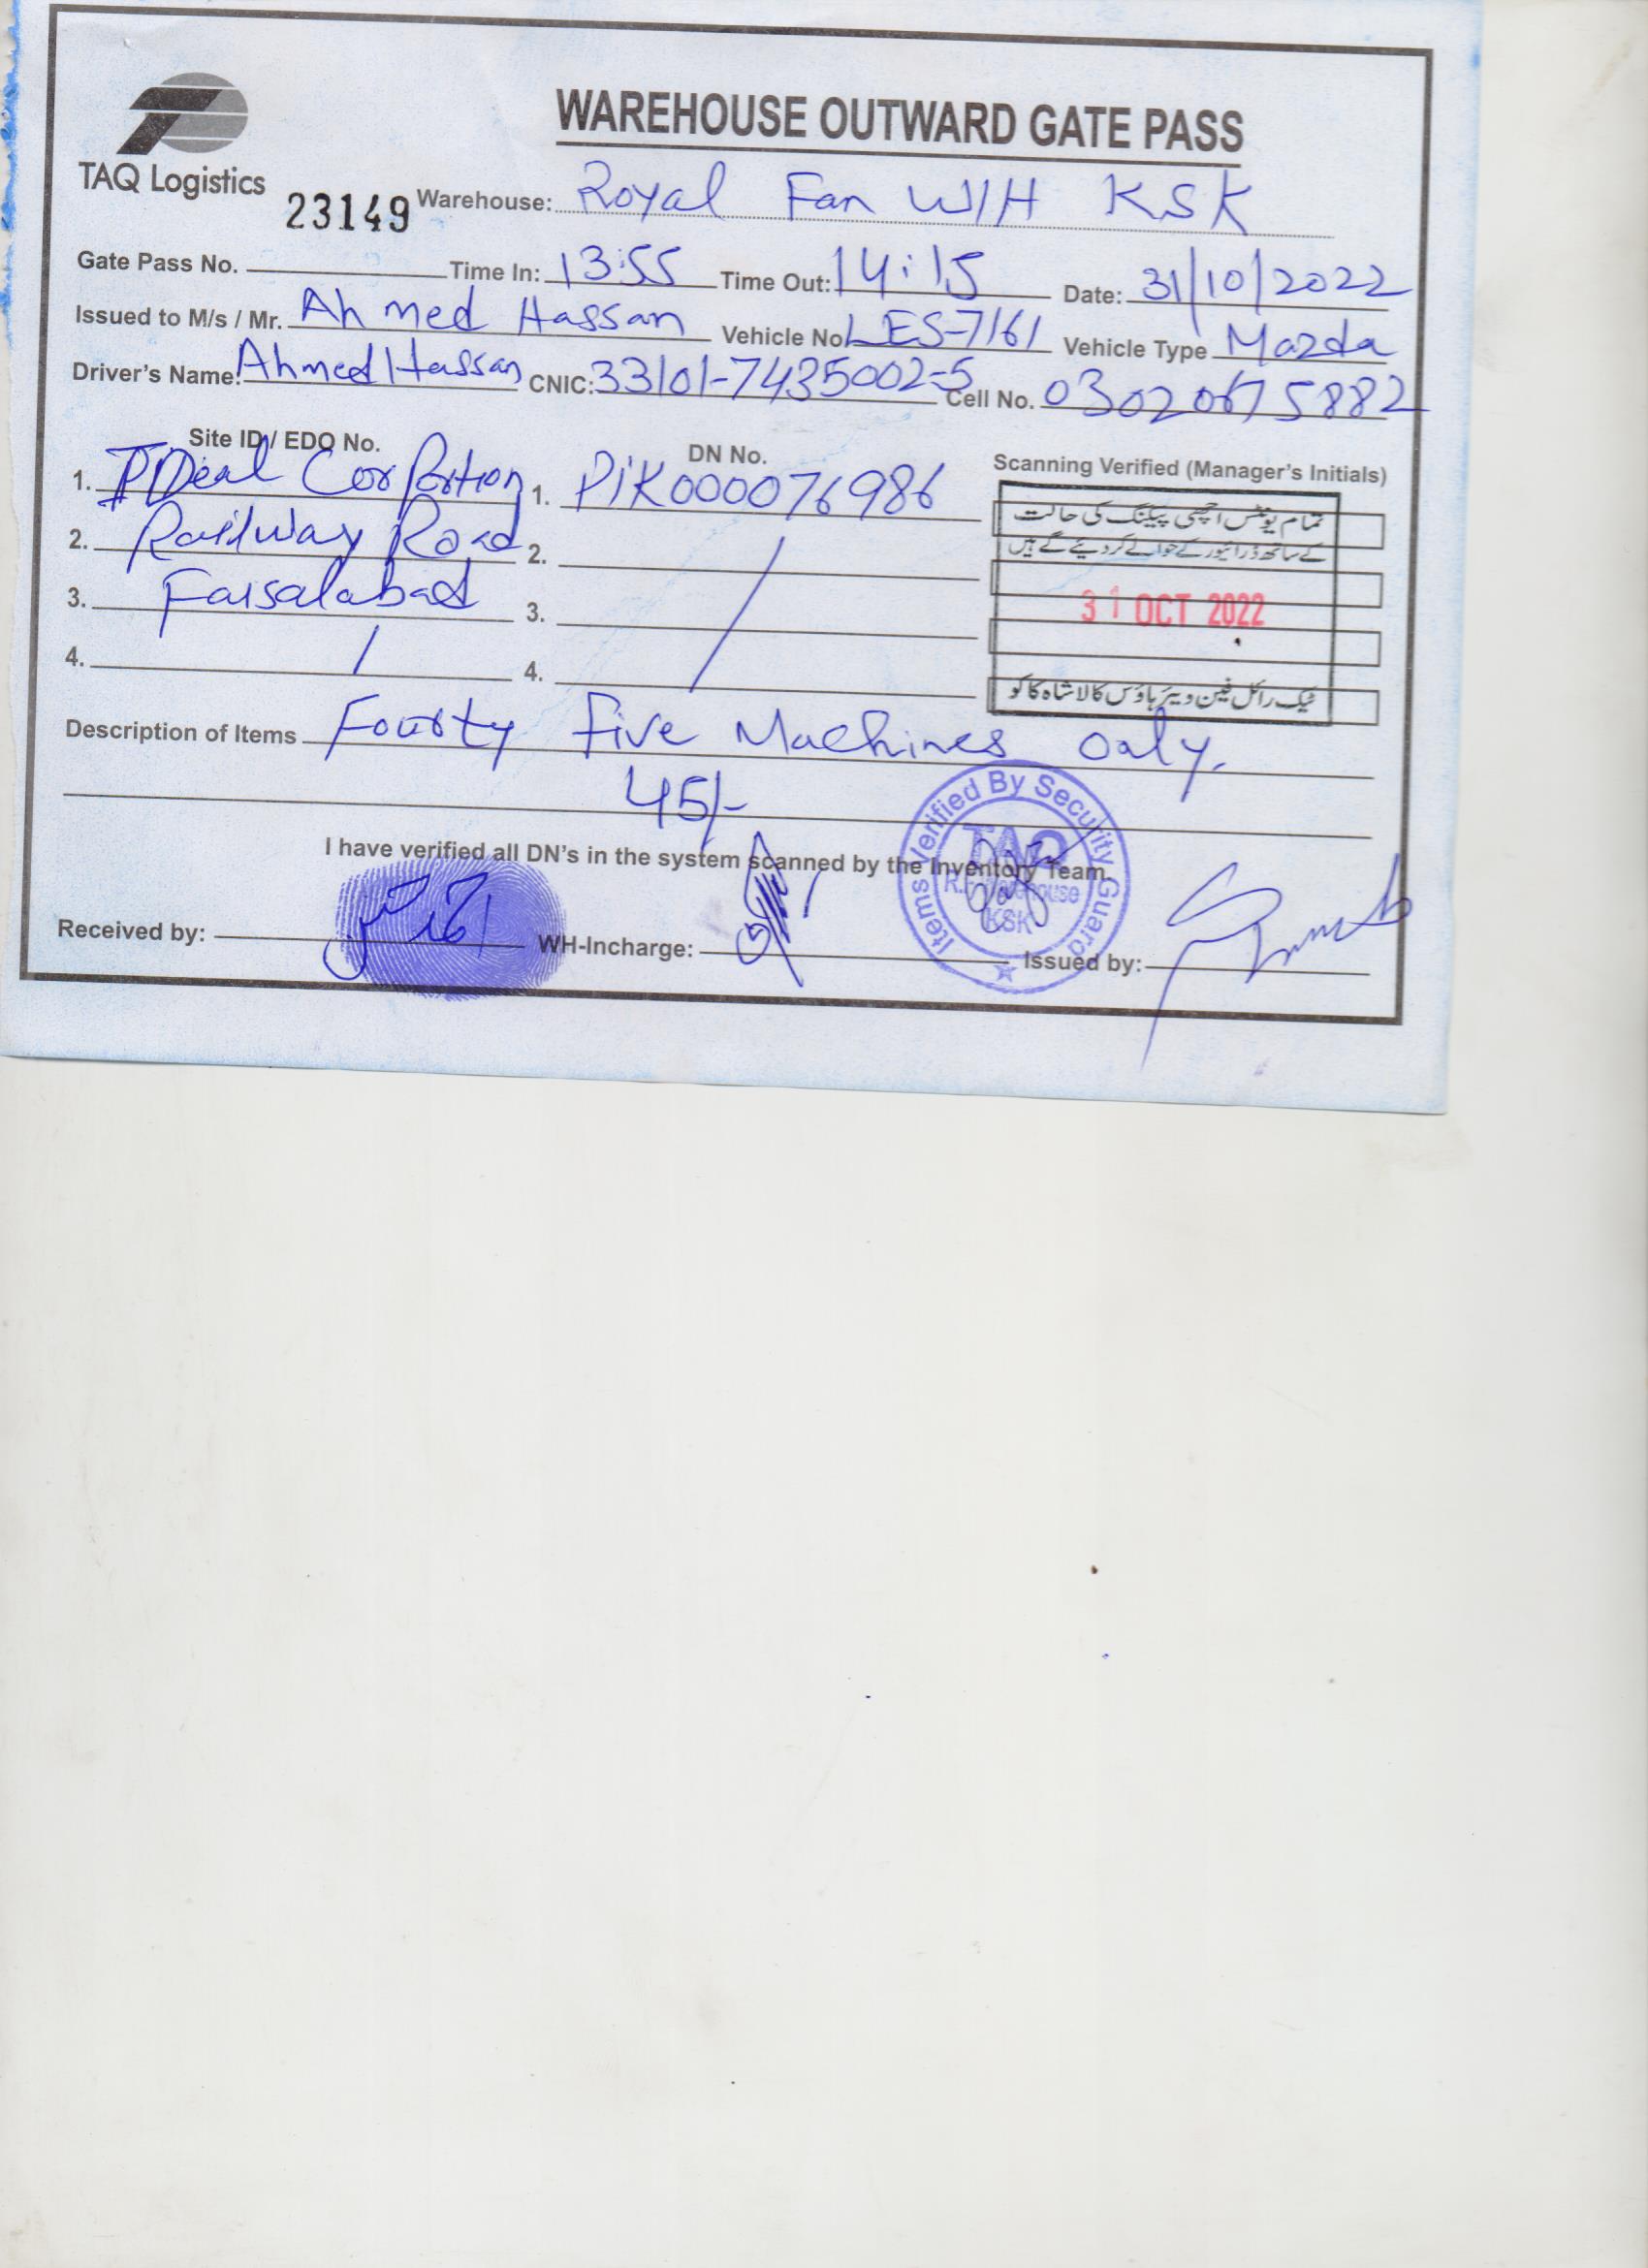 WAREHOUSE OUTWARD GATE PASS
TAQ Logistics
23149 Warehouse: Royal Fan W/H KSK
Gate Pass No. Time In: 13:55 Time Out: 14:15 Date: 31/10/2022
Issued to M/s / Mr. Ahmed Hassan Vehicle No LES-7161 Vehicle Type Mazda
Driver's Name: Ahmed Hassan CNIC: 33101-7435002-5 Cell No. 03020675882
Site ID / EDO No. DN No. Scanning Verified (Manager's Initials)
1. IDeal Corportion 1. PIK0000076986
2. Railway Road 2.
3. Faisalabad 3.
4. 4.
تمام یونٹس اچھی پیکنگ کی حالت
کے ساتھ ڈرائیور کے حوالے کر دیئے گئے ہیں
31 OCT 2022
ٹیک رائل فین ویئر ہاؤس کالا شاہ کاکو
Description of Items Fourty Five Machines only.
45/-
I have verified all DN's in the system scanned by the Inventory Team.
Items Verified By Security Guard
TAQ
KSK
Received by: WH-Incharge: Issued by: